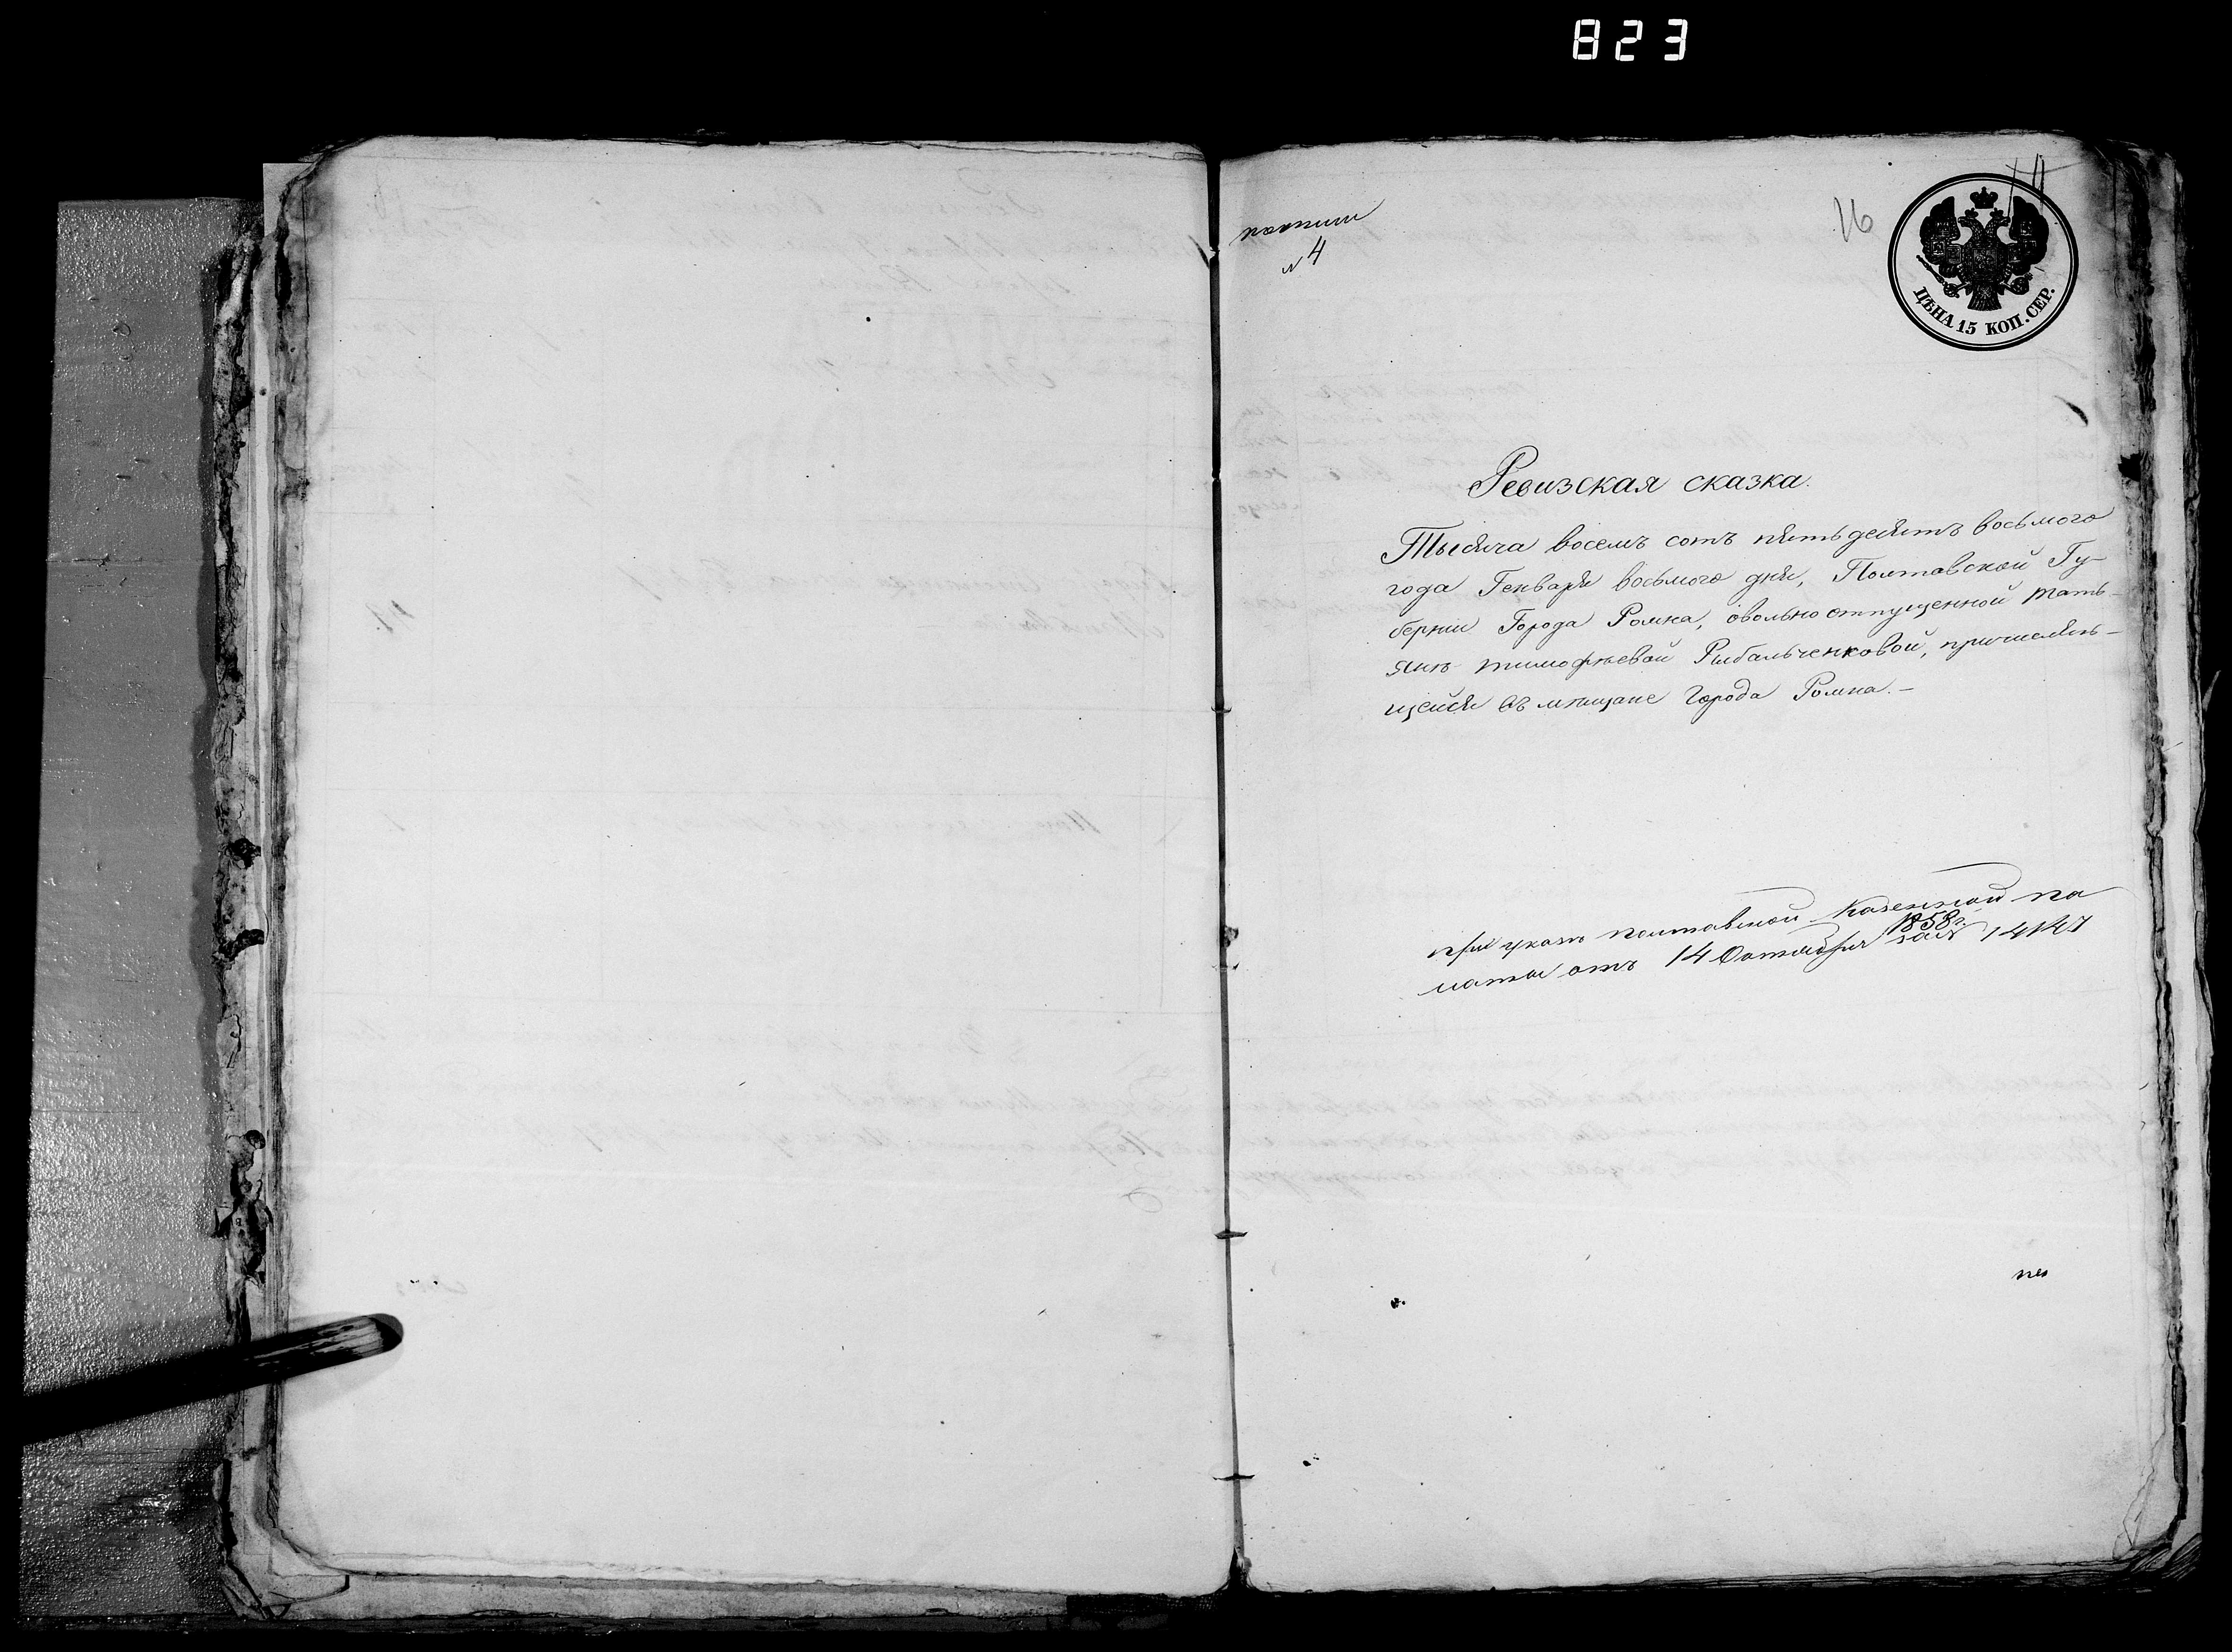 823
16
копия
№ 4
ЦѢНА 15 КОП. СЕР.
Ревизская сказка.
Тысяча восемъ сотъ пятьдесятъ восьмого
года Генваря восьмого дня, Полтавской Гу-
берніи Города Ромна, овольноотпущенной Тать-
янѣ тимофѣевой Рыбальченковой, причисляю-
щейся въ мѣщане Города Ромна.-
при указѣ полтавской Казенной па
латы отъ 14 Октября 1858 г. за №